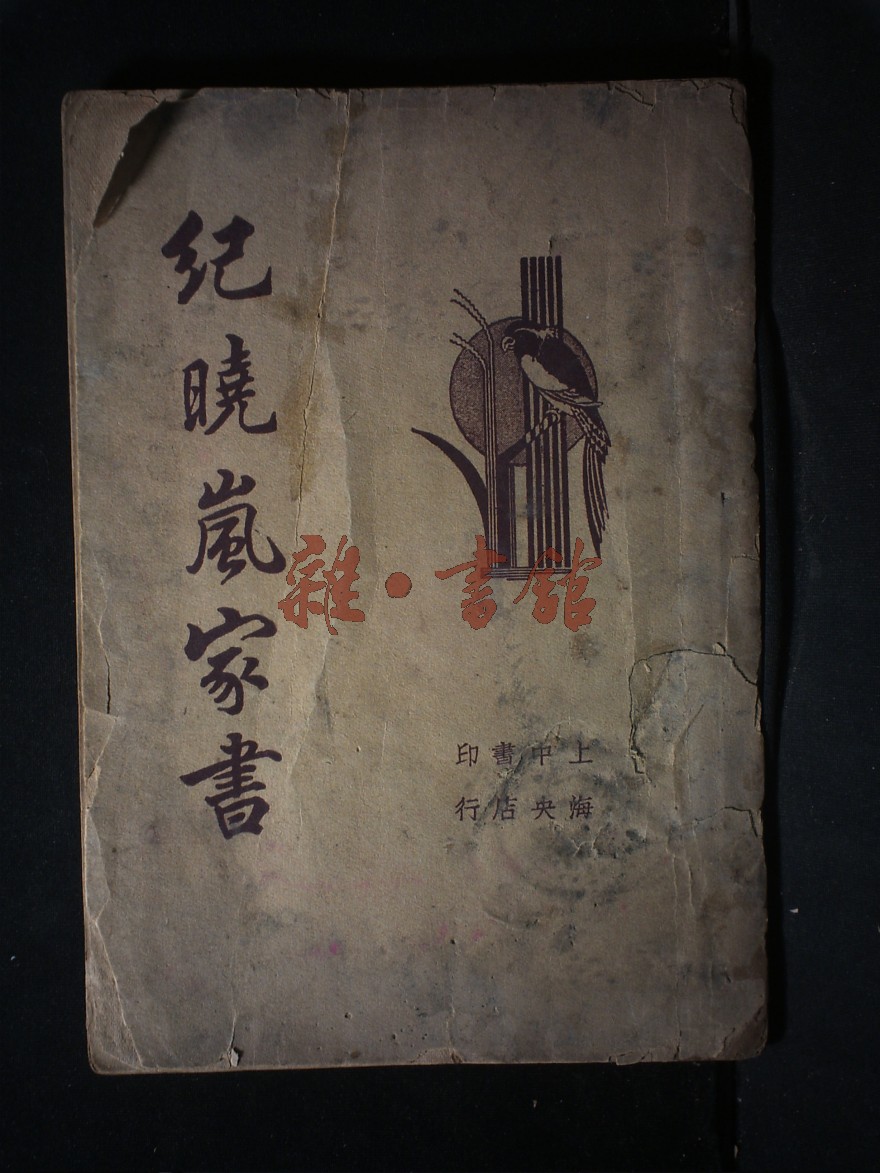 紀曉嵐家書
上海
中央
書店
印行
雜·書館